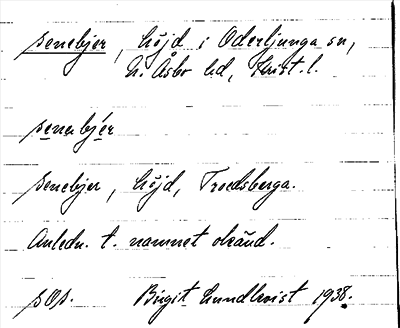 senebjer, höjd i Oderljunga sn,
N. Åsbo hd, Krist. l.
senebjer
senebjer, höjd, Troedsberga.
Anledn. t. namnet okänd.
sOs. Birgit Lundkvist 1938.